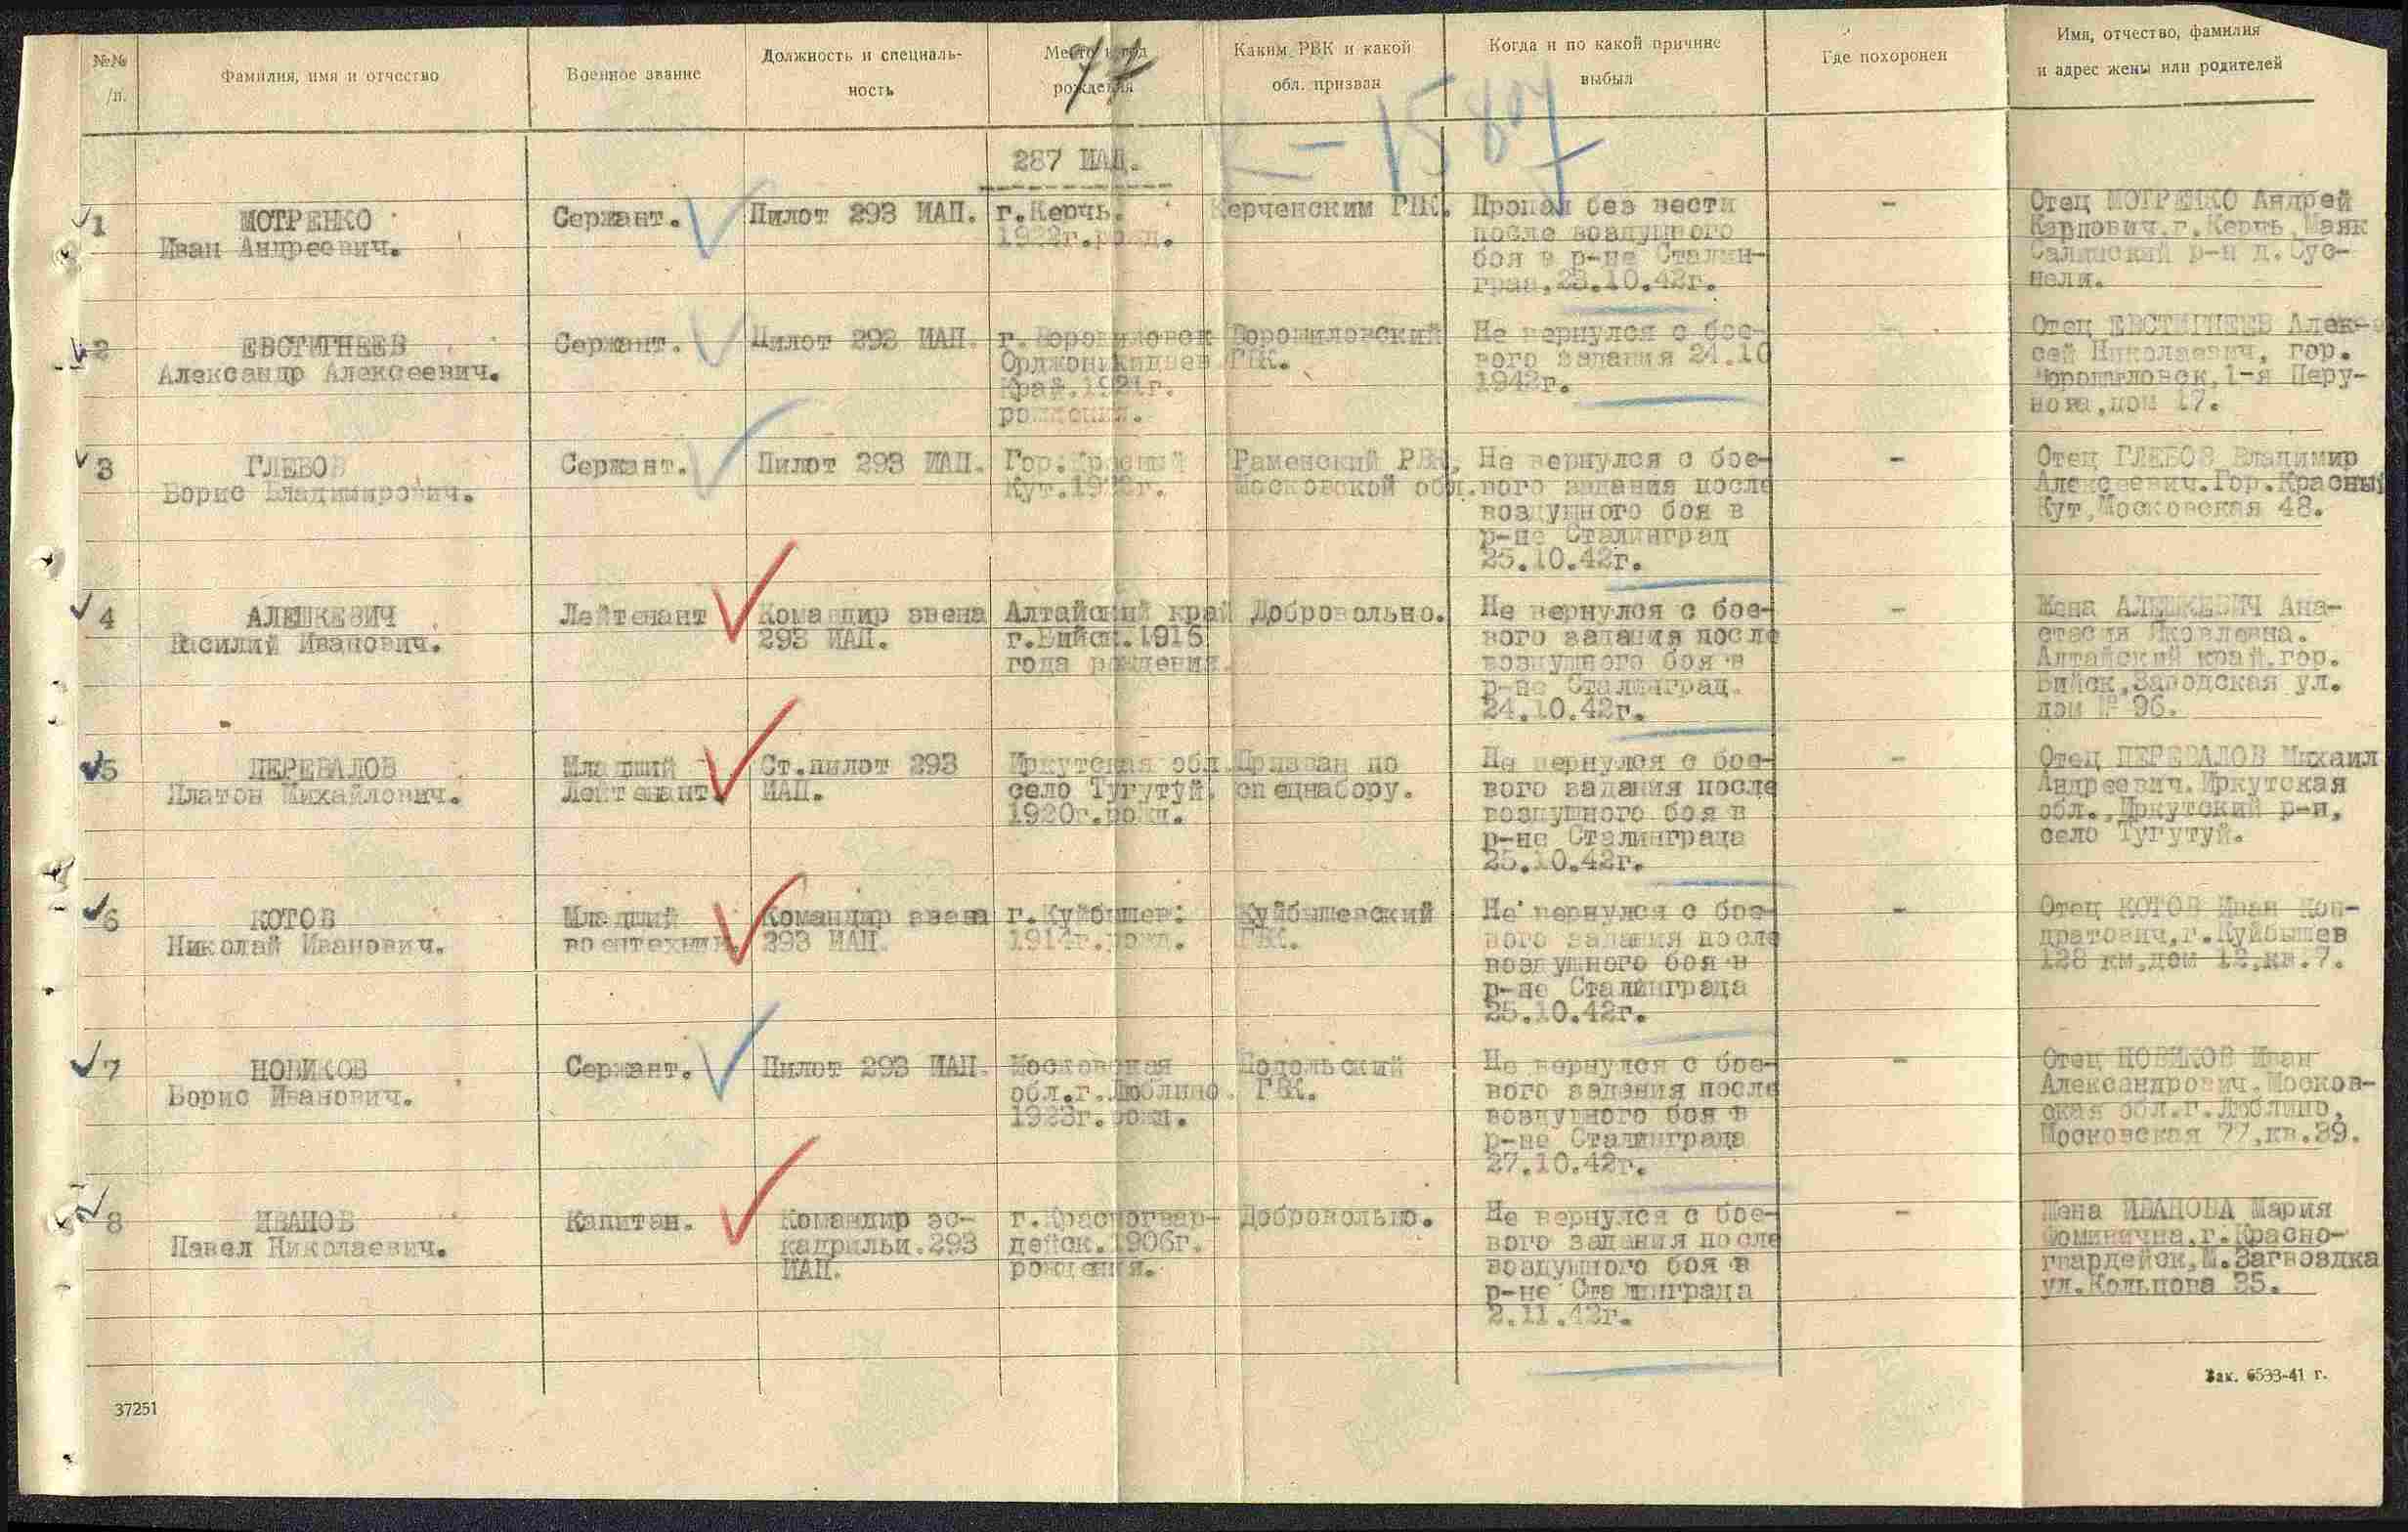 №№ /п.
Фамилия, имя и отчество
Военное звание
Должность и специальность
Место и год рождения
Каким РВК и какой обл. призван
Когда и по какой причине выбыл
Где похоронен
Имя, отчество, фамилия и адрес жены или родителей
77
К-15807
287 ИАД.
1
МОТРЕНКО
Иван Андреевич.
Сержант.
Пилот 293 ИАП.
г.Керчь.
1922г.рожд.
Керченским ГВК.
Пропал без вести
после воздушного
боя в р-не Сталин-
град.23.10.42г.
-
Отец МОТРЕНКО Андрей
Карпович.г.Керчь,Маяк
Салынский р-н д.
2
ЕВСТИГНЕЕВ
Александр Алексеевич.
Сержант.
Пилот 293 ИАП.
г.Ворошиловск
Орджоникидзев
Край.1921г.
рождения.
Ворошиловский
ГВК.
Не вернулся с бое-
вого задания 24.10
1942г.
Отец ЕВСТИГНЕЕВ Алек-
сей Николаевич, гор.
Ворошиловск,1-я Перу-
нова,дом 17.
3
ГЛЕБОВ
Борис Владимирович.
Сержант.
Пилот 293 ИАП.
Гор.Красный
Кут.192г.
Раменский РВК,
Московской обл.
Не вернулся с бое-
вого задания после
воздушного боя в
р-не Сталинград
25.10.42г.
-
Отец ГЛЕБОВ Владимир
Алексеевич.Гор.Красный
Кут,Московская 48.
4
АЛЕШКЕВИЧ
Василий Иванович.
Лейтенант
Командир звена
293 ИАП.
Алтайский край
г.Бийск.1915
года рождения.
Добровольно.
Не вернулся с бое-
вого задания после
воздушного боя в
р-не Сталинград.
24.10.42г.
-
Жена АЛЕШКЕВИЧ Ана-
стасия Яковлевна.
Алтайский край.гор.
Бийск,Заводская ул.
дом № 96.
5
ПЕРЕВАЛОВ
Платон Михайлович.
Младший
Лейтенант.
Ст.пилот 293
ИАП.
Иркутская обл.
село Тугутуй.
1920г.рожд.
Призван по
спецнабору.
Не вернулся с бое-
вого задания после
воздушного боя в
р-не Сталинграда
25.10.42г.
-
Отец ПЕРЕВАЛОВ Михаил
Андреевич.Иркутская
обл.,Иркутский р-н,
село Тугутуй.
6
КОТОВ
Николай Иванович.
Младший
воентехник.
Командир звена
293 ИАП.
г.Куйбышев:
1914г.рожд.
Куйбышевский
ГВК.
Не вернулся с бое-
вого задания после
воздушного боя в
р-не Сталинграда
25.10.42г.
-
Отец КОТОВ Иван Кон-
дратович,г.Куйбышев
128 км,дом 12,кв.7.
7
НОВИКОВ
Борис Иванович.
Сержант.
Пилот 293 ИАП.
Московская
обл.г.Люблино.
1923г.рожд.
Подольский
ГВК.
Не вернулся с бое-
вого задания после
воздушного боя в
р-не Сталинграда
27.10.42г.
-
Отец НОВИКОВ Иван
Александрович.Москов-
ская обл.г.Люблино,
Московская 77,кв.39.
8
ИВАНОВ
Павел Николаевич.
Капитан.
Командир эс-
кадрильи.293
ИАП.
г.Красногвар-
дейск.1906г.
рождения.
Добровольно.
Не вернулся с бое-
вого задания после
воздушного боя в
р-не Сталинграда
2.11.42г.
-
Жена ИВАНОВА Мария
Фоминична,г.Красно-
гвардейск,М.Загвоздка
ул.Кольцова 35.
37251
Зак. 6533-41 г.